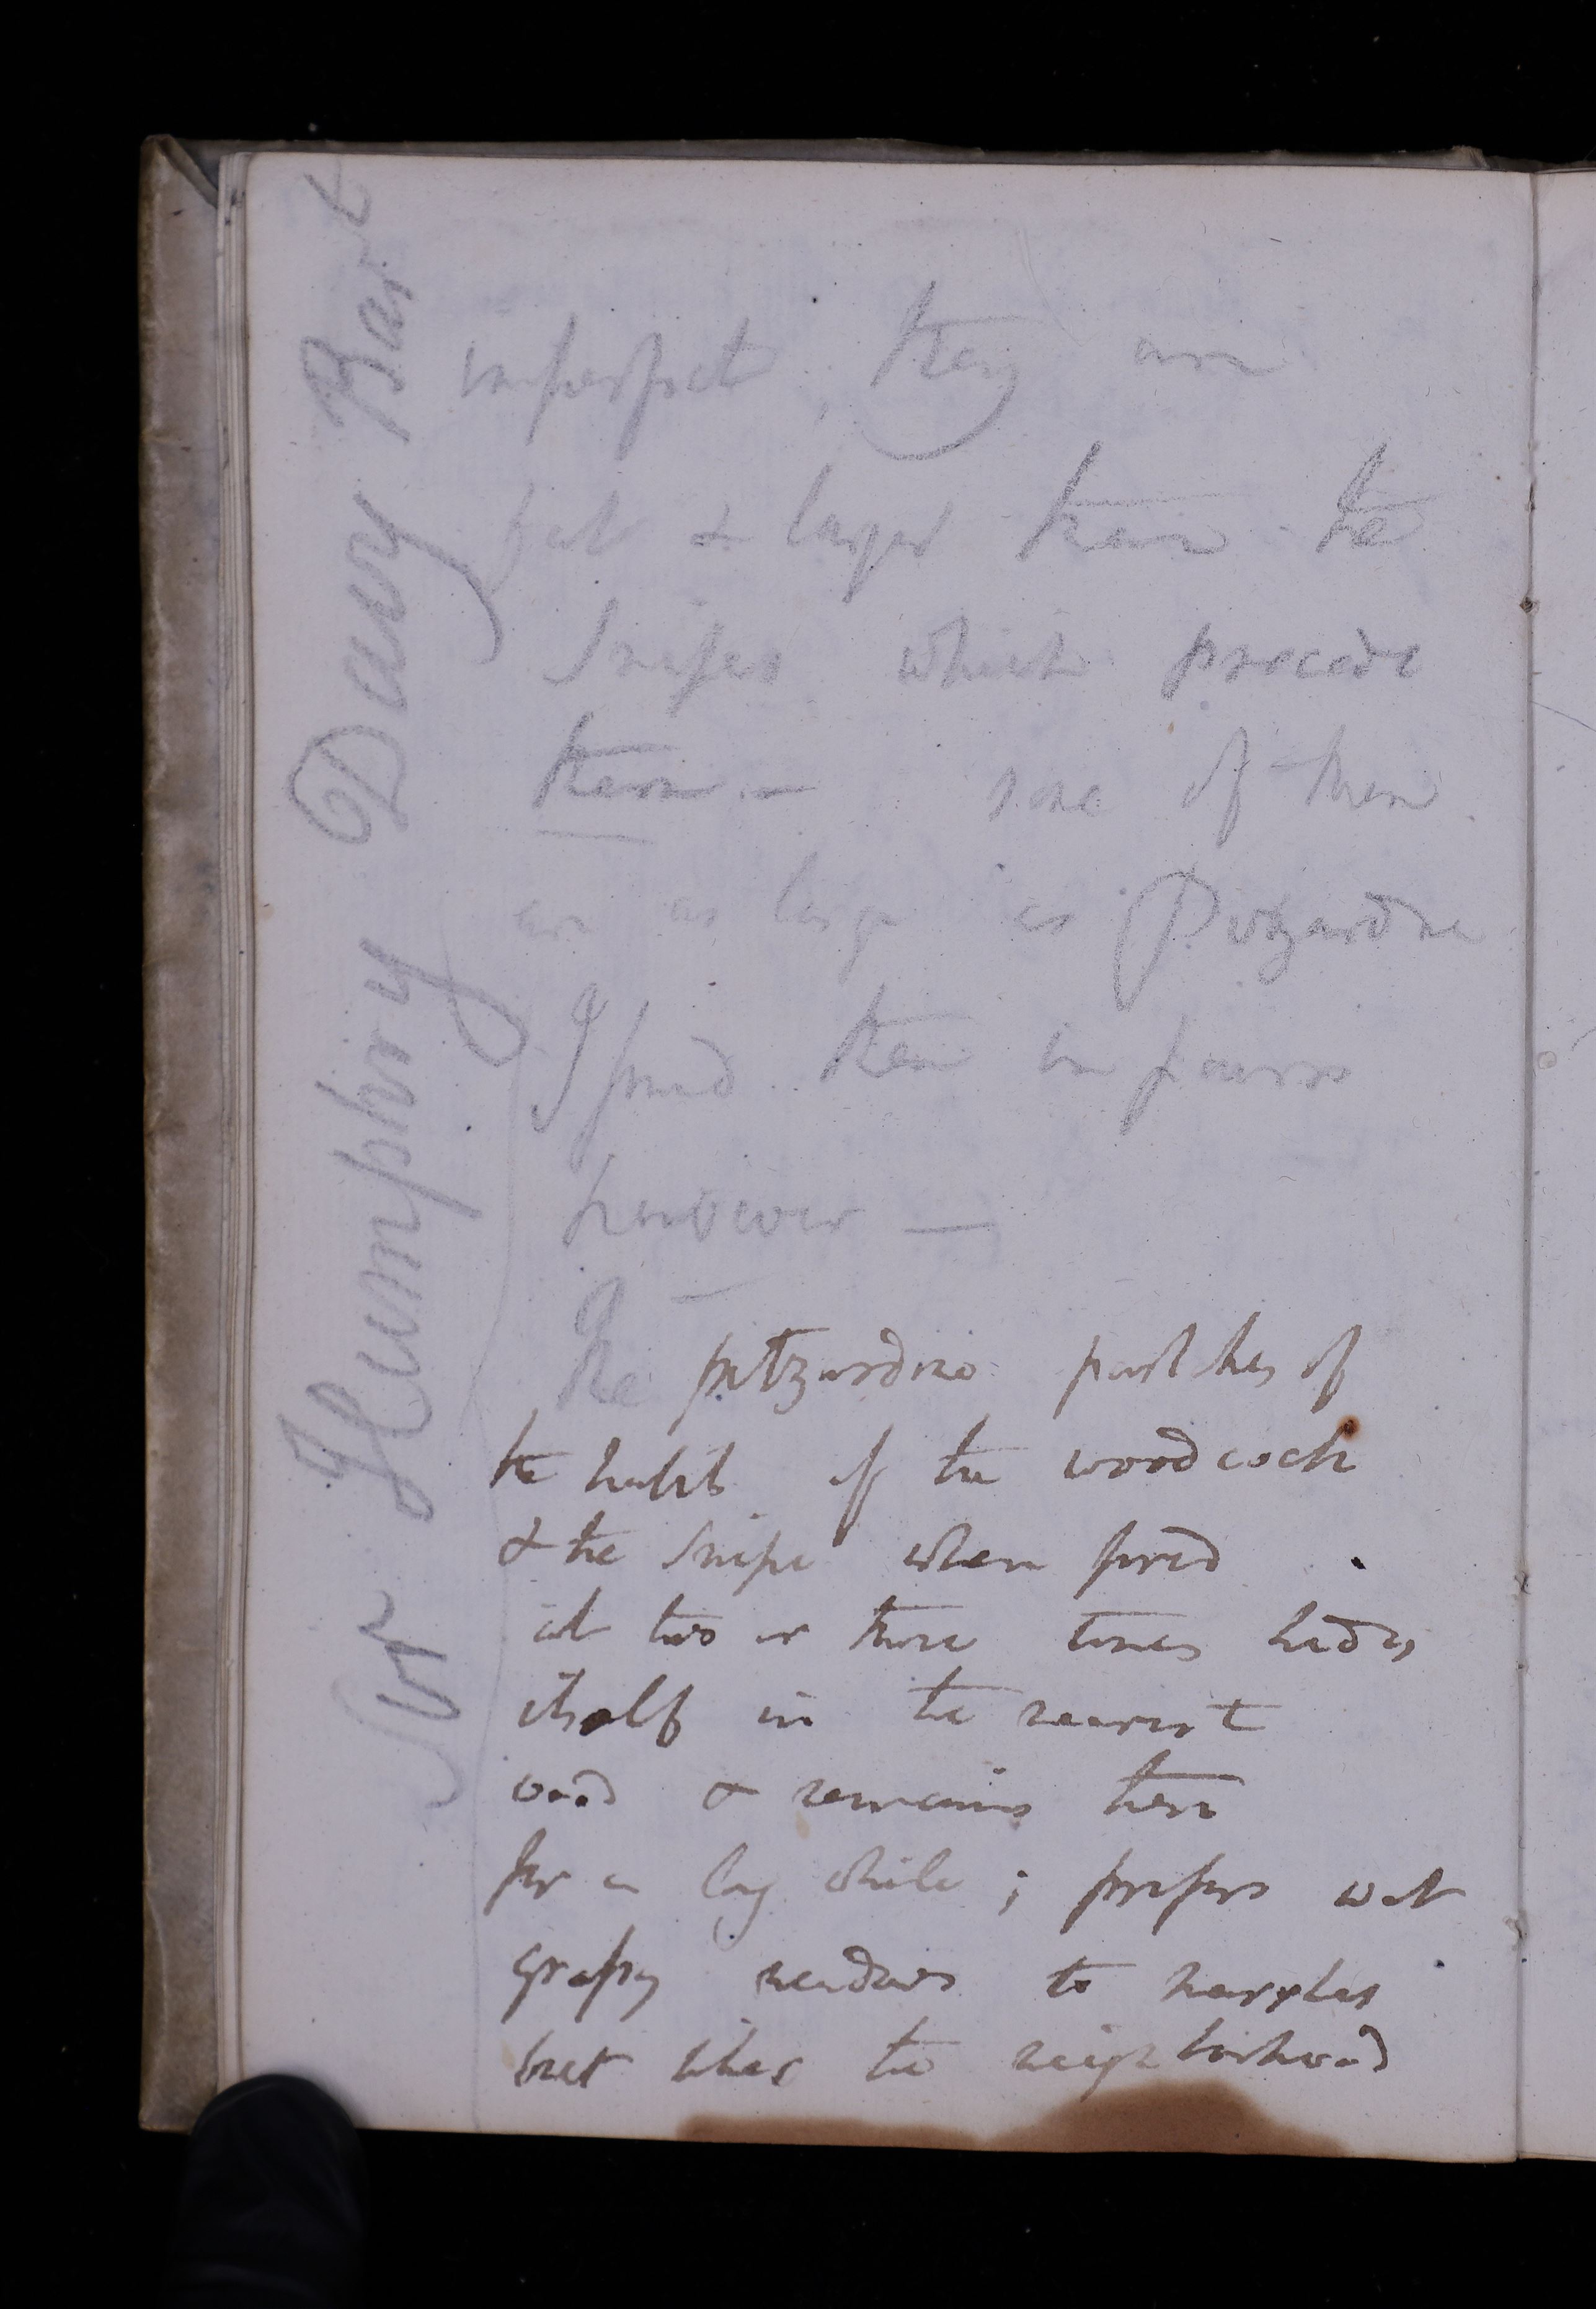 Sir Humphry Davy Bart
imperfect, they are
fat & larger than the
Snipes which precede
them. — some of them
are as large as Pitzardne
I found them in pairs
however —
The pitzardine partakes of
the habits of the woodcock
& the Snipe when fired
at two or three times hides
itself in the nearest
wood & remains there
for a long while ; prefers wet
grassy meadows to marshes
but likes the neighborhood